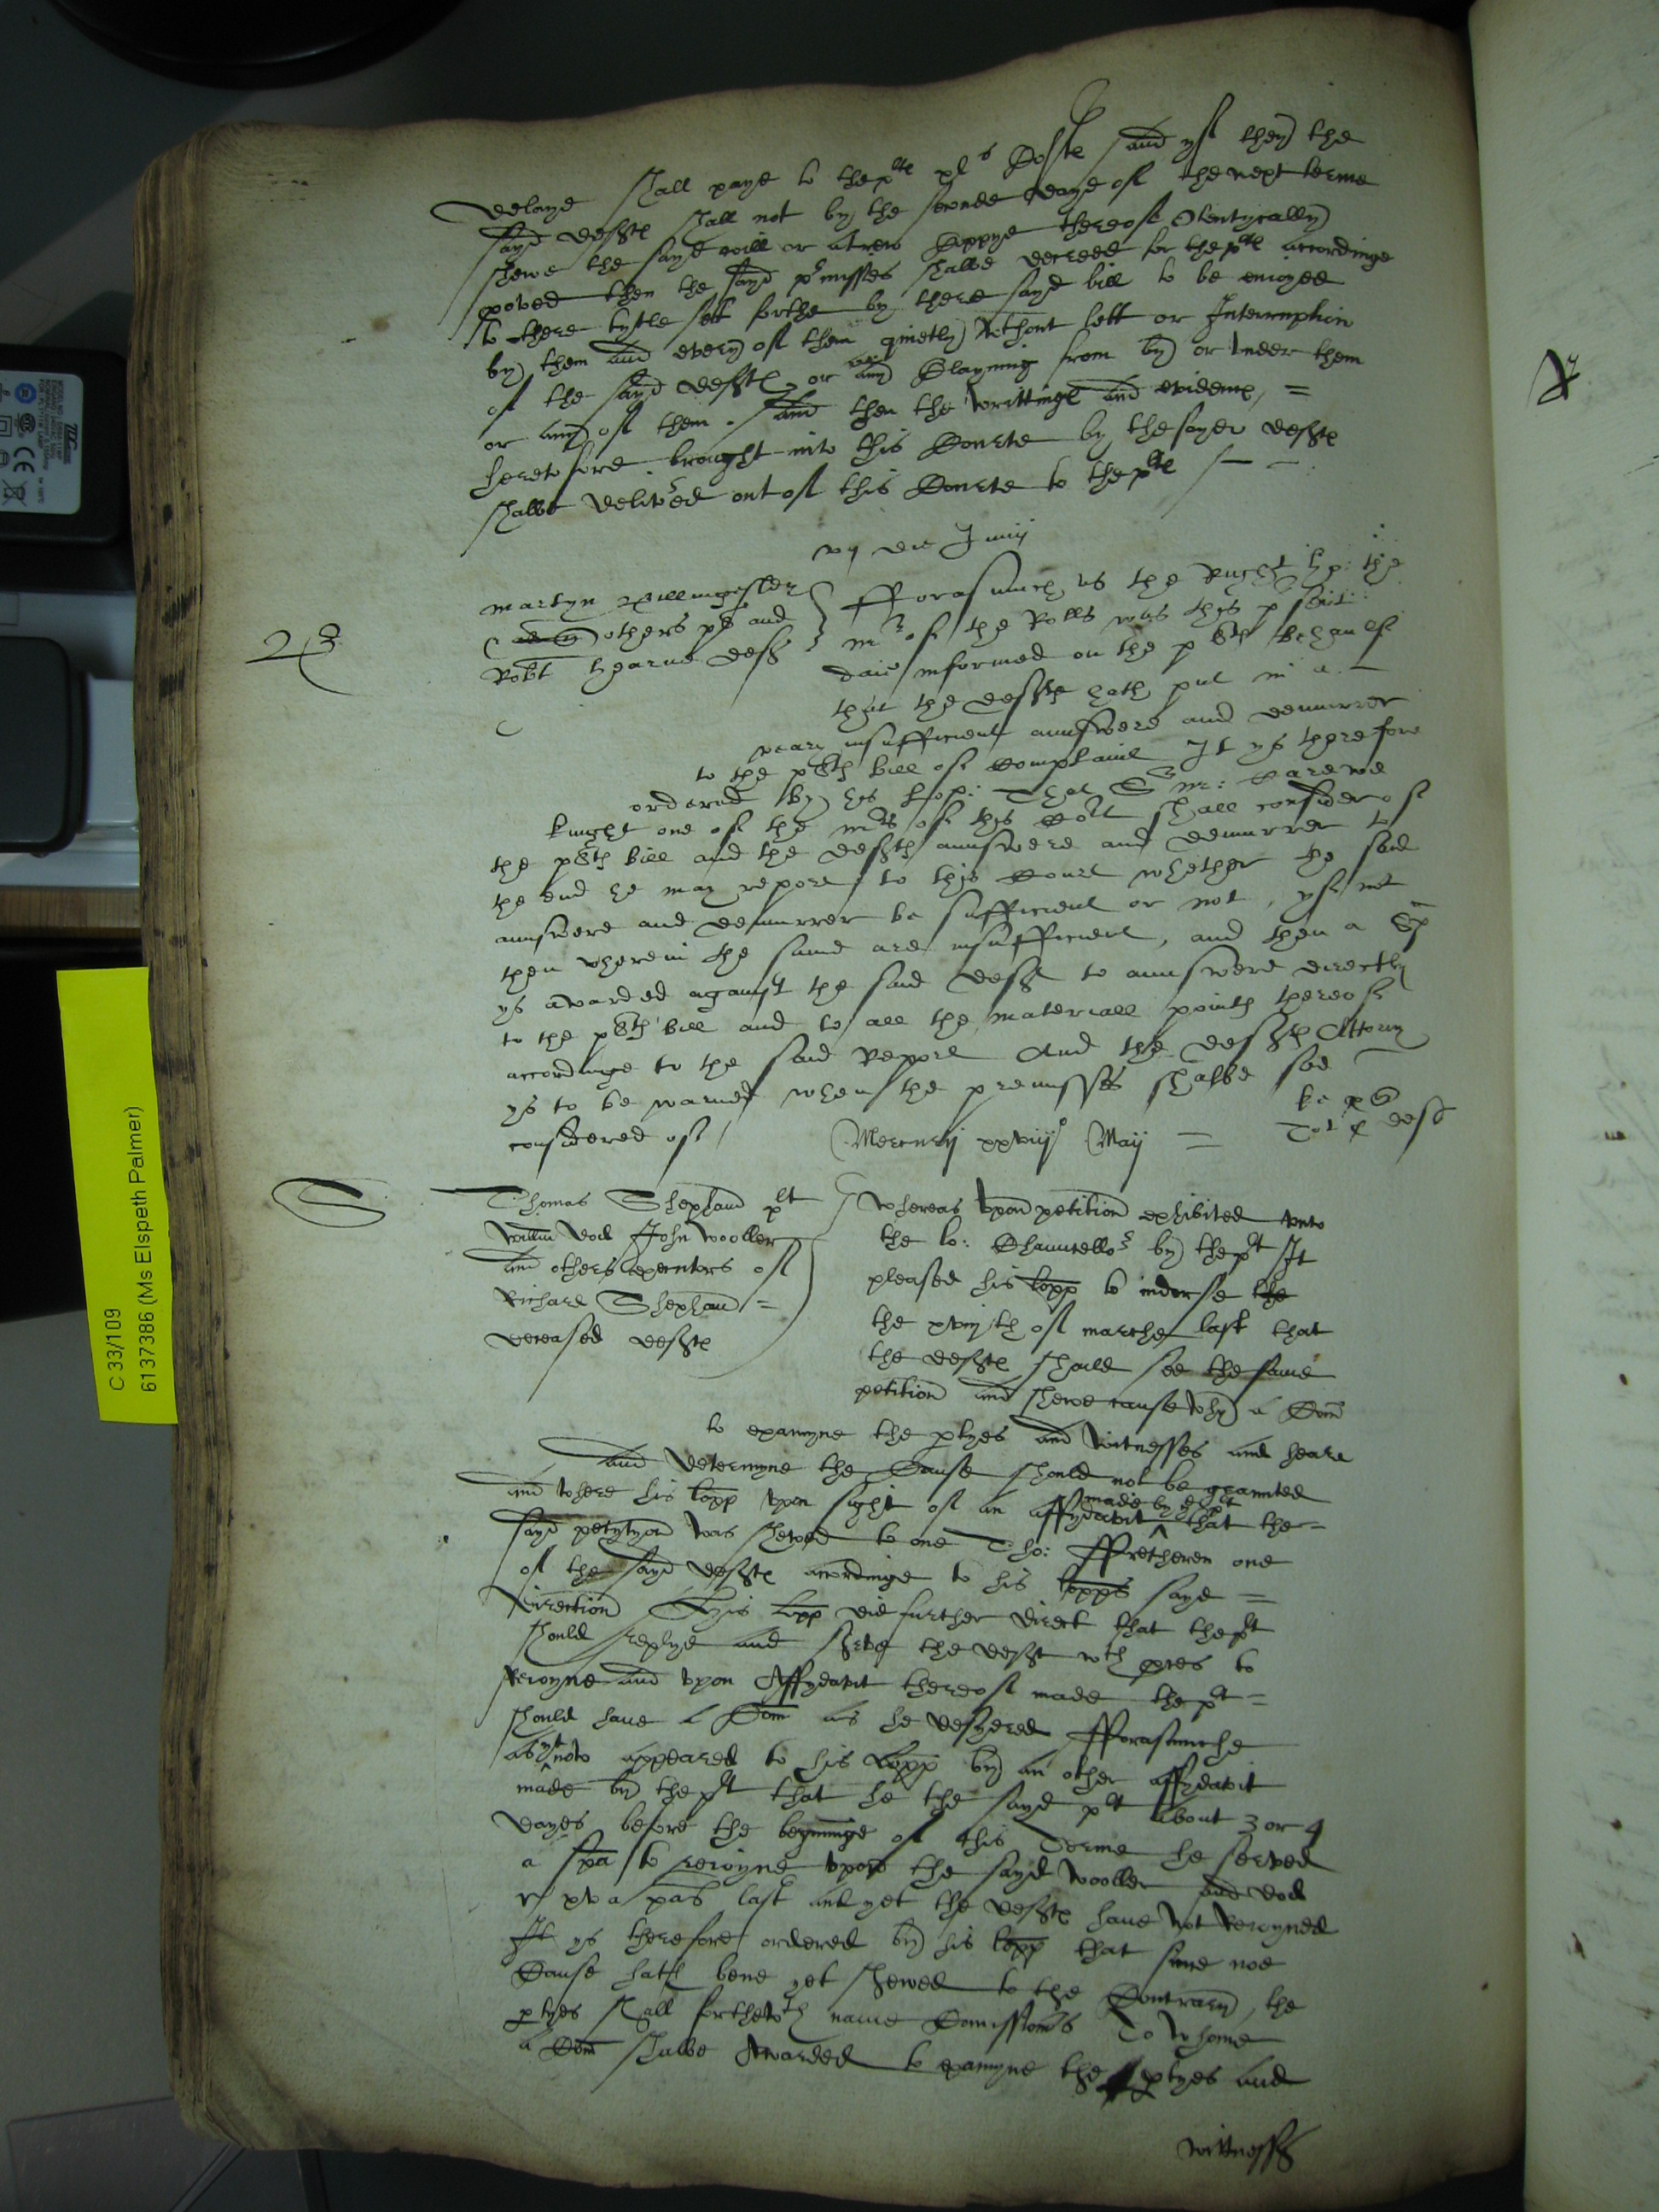 delaye shall paye to the plts Costs and yf they the
sayd deftes shall not by the seconde daye of the next terme
shewe the sayd will or a trew Coppye thereof Otentycally
proved then the sayd premisses shalbe decreed for the plts accordinge
to there tytle sett forthe by there sayd bill to be enioyed
by them and every of them quietly without lett or Interruption
of the sayd deftes or any Clayming from by or under them
or any of them. and then the writtinges and evidence, =
heretofore brought into this Courte by the sayed deftes
shalbe delivered out of this Courte to the plts
die Junij
Martyn
others pl and
Robt hearne deft
Fforasmuch as the Right ho: the
Mr of the Rolls was this present
daie informed on the pltes behaulf
that the defte hath put in a
vearie insufficient aunswere and demurrer
to the pltes bill of Complaint It ys therefore
ordered by his hop: That Sr Mr: Carewe
knight one of the mrs of this Cort shall consider of
the pltes bill and the deftes aunswere and demurrer to
the end he may reporte to this Courte whether the said
aunswere and demurrer be sufficient or not, yf not
then wherein the same are insufficient, and then a sp
ys awarded against the said deft to aunswere directly
to the pltes bill and to all the materiall points thereof
accordinge to the said Reporte And the deftes Attorny
ys to be warned when the premisses shalbe soe
considered of
Mercurij xxviijo Maij =
S
Thomas Shephard plt
Willm John Wooller
and others executors of
Richard Shephard =
deceased deftes
Whereas upon petition exhibited unto
the lo: Chauncellor by the plt It
pleased his lopp to indorse the
the xviijth of marche last that
the deftes should see the same
petition and shewe cause why a Com
to examyne the ptyes and wittnesses and heare
and determyne the Cause should not be graunted
and where his lopp upon sight of an affydavit made by the plt that the =
sayd petytyon was shewed to one Tho: one
of the sayd deftes accordinge to his lopps sayd =
direction His lopp did further direct that the plt
should replye and serve the deft wth pces to
Reioyne and upon Affydavit thereof made the plt =
should have a Com as he desyered Fforasmuche
as yt now appeared to his Lopp by an other affydavit
made by the plt that he the sayd plt about 3 or 4
dayes before the begyninge of this Terme he served
a spa to reioyne upon the sayd Wooller and
r xva pas last and yet the deftes have not Reioyned
It ys therefore ordered by his lopp that since noe
Cause hath bene yet shewed to the Contrary, the
ptyes shall forthewth name Comissioners To whome
a Com shalbe Awarded to examyne the ptyes and
wittnesses
C 33/109
6137386 (Ms Elspeth Palmer)